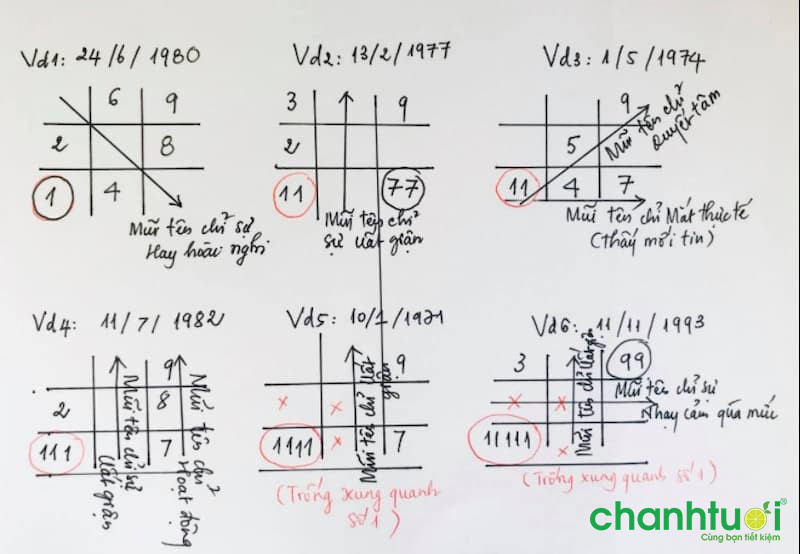 Vd1: 24/6/1980
6 9
2 8
1 4
Mũi tên chỉ sự
Hay hoài nghi
Vd2: 13/2/1977
3 9
2
11 77
Mũi tên chỉ
sự uất giận
Vd3: 1/5/1974
9
5
11 4 7
Mũi tên chỉ
quyết tâm
Mũi tên chỉ Mất thực tế
(thấy mới tin)
Vd4: 11/7/1982
9
2 8
111 7
Mũi tên chỉ sự
Uất giận
Mũi tên chỉ
Hoạt động
Vd5: 10/1/1971
9
x x
1111 x 7
Mũi tên chỉ Uất
giận
(Trống xung quanh
số 1)
Vd6: 11/11/1993
3 99
x x
11111 x
Mũi tên chỉ Uất giận
Mũi tên chỉ sự
Nhạy cảm quá mức
(Trống xung quanh số 1)
chanhtươi®
Cùng bạn tiết kiệm